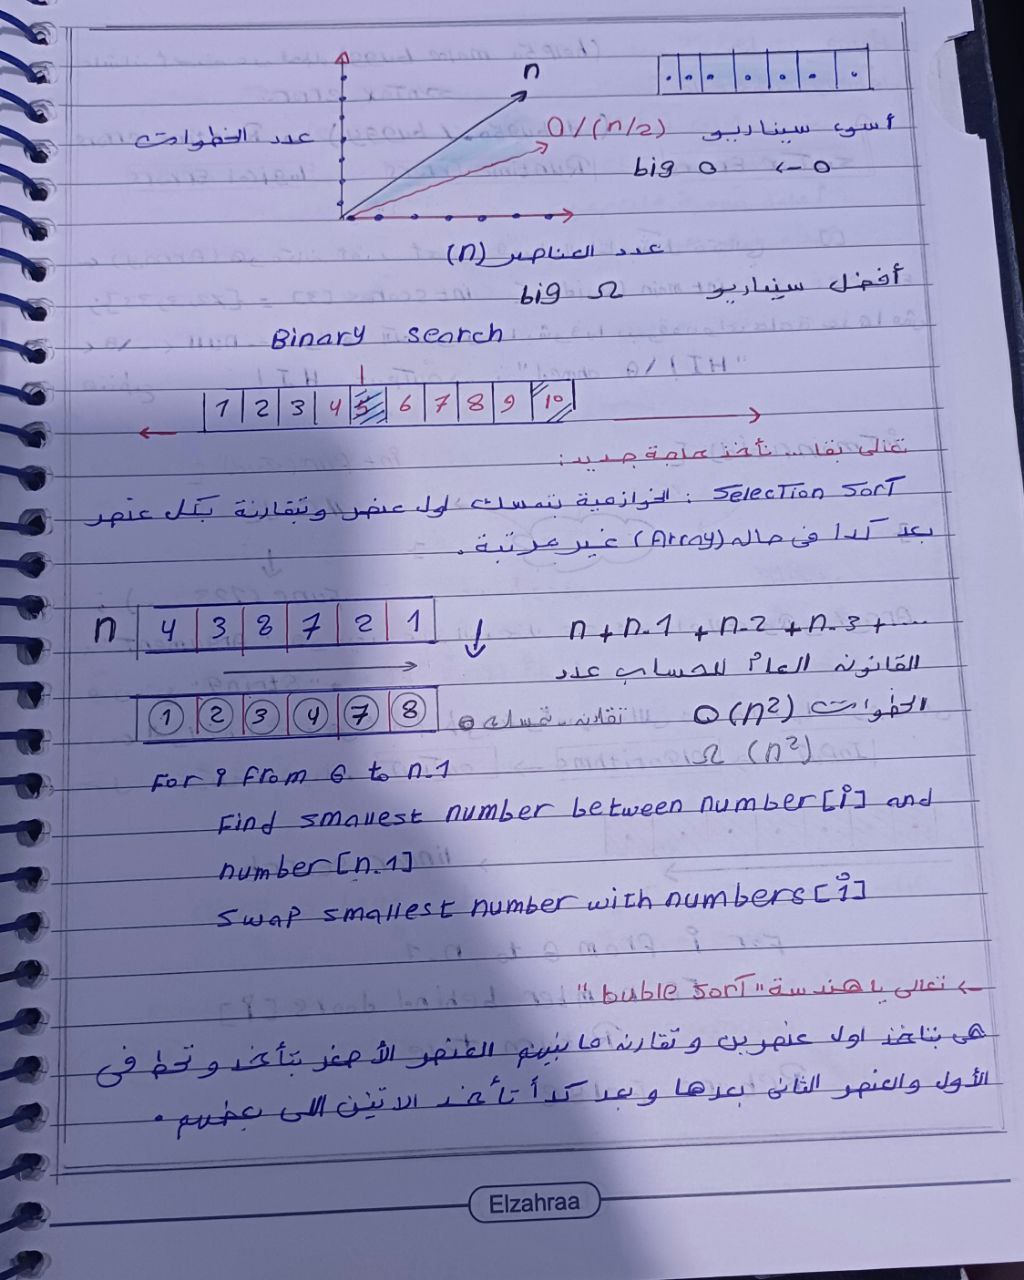 n
O/(n/2)
أسوء سيناريو
عدد الخطوات
big O <- O
عدد العناصر (n)
أفضل سيناريو big Ω
Binary search
1 2 3 4 5 6 7 8 9 10
تعالى بقا... نأخذ حاجة جديد:
Selection Sort : الخوازمية بتمسك اول عنصر وتقارنة بكل عنصر
بعد كدا فى حاله (Array) غير مرتبة.
n 4 3 8 7 2 1
n + n-1 + n-2 + n-3 + ...
القانون العام لحساب عدد
1 2 3 4 7 8
الخطوات O(n²)
Ω (n²)
For i from 0 to n-1
Find smallest number between number[i] and
number[n-1]
Swap smallest number with numbers[i]
<- تعالى يا هندسة "buble Sort"
هى بتاخذ اول عنصرين و تقارنه ما بينهم العنصر الأصغر تأخذ و تحط فى
الأول والعنصر الثانى بعدها و بعد كدا تأخذ الاتنين اللى بعضهم .
Elzahraa